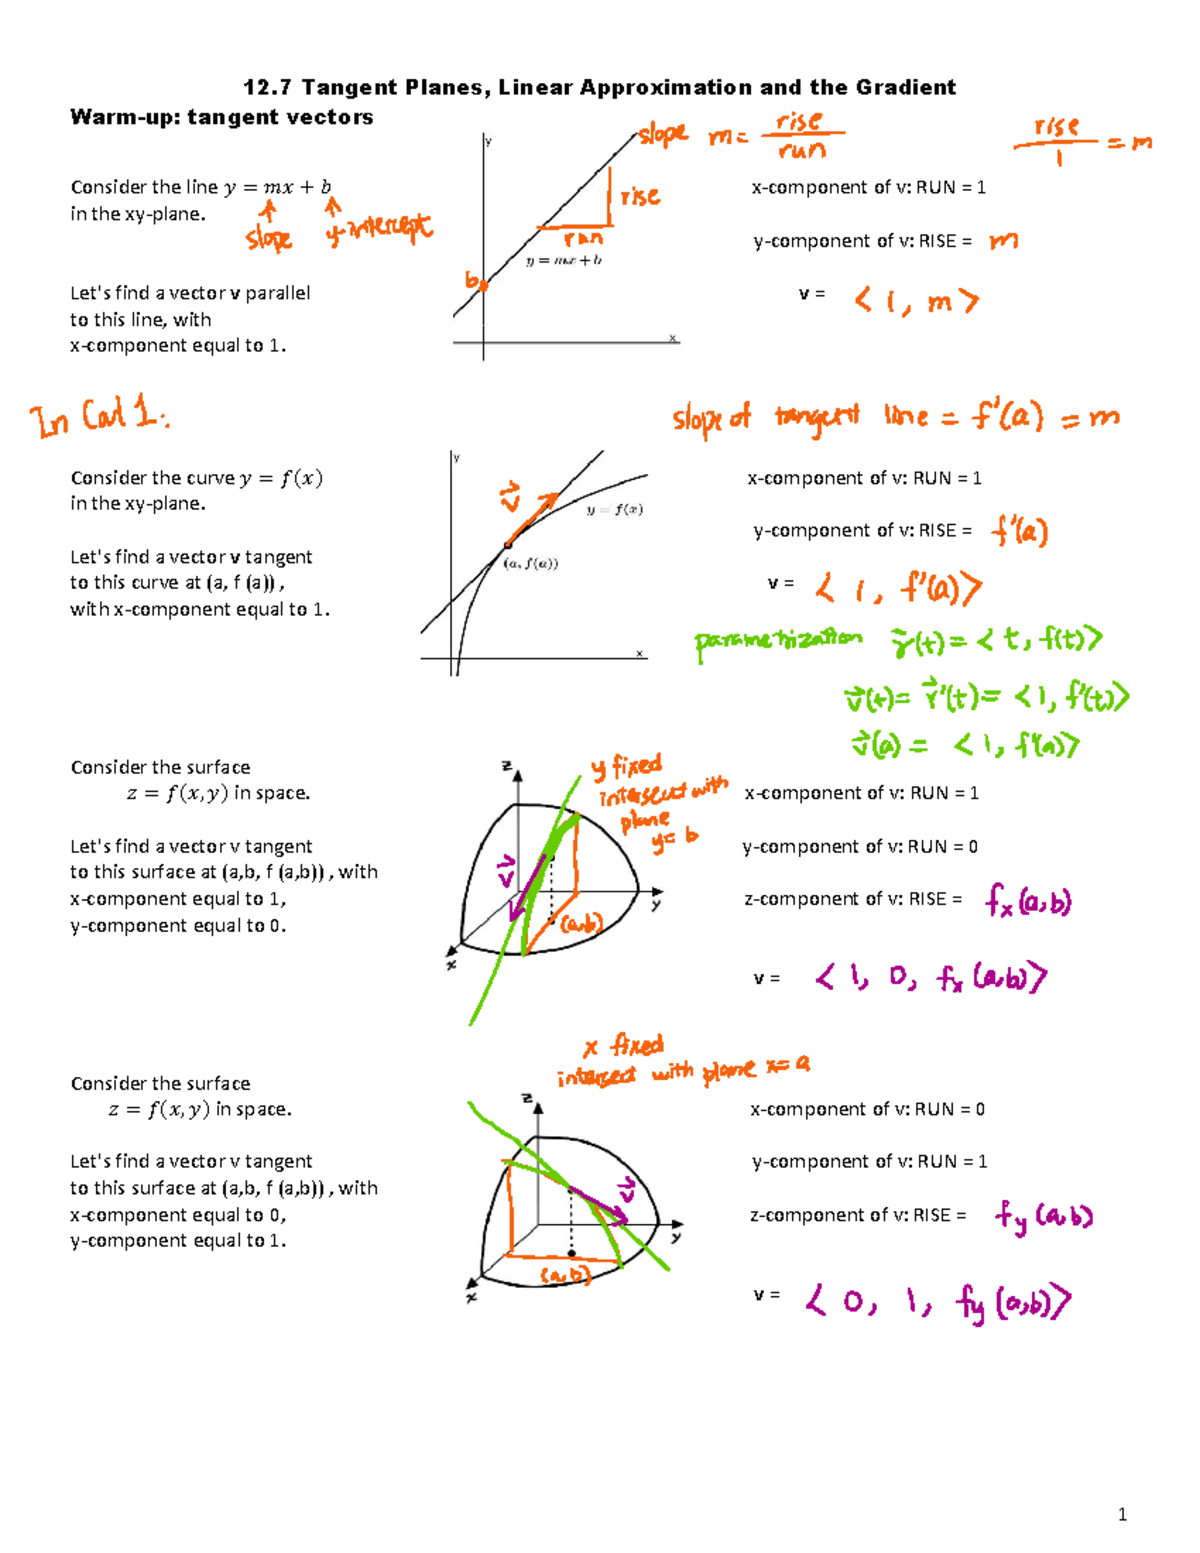 12.7 Tangent Planes, Linear Approximation and the Gradient
Warm-up: tangent vectors
slope m = rise/run
rise/1 = m
Consider the line y = mx + b
in the xy-plane.
slope
y-intercept
y
rise
run
y = mx + b
b
x
x-component of v: RUN = 1
y-component of v: RISE = m
Let's find a vector v parallel
to this line, with
x-component equal to 1.
v = < 1, m >
In Cal 1:
slope of tangent line = f'(a) = m
Consider the curve y = f(x)
in the xy-plane.
Let's find a vector v tangent
to this curve at (a, f (a)) ,
with x-component equal to 1.
y
v⃗
y = f(x)
(a, f(a))
x
x-component of v: RUN = 1
y-component of v: RISE = f'(a)
v = < 1, f'(a)>
parametrization r⃗(t) = < t, f(t)>
v⃗(t) = r⃗'(t) = <1, f'(t)>
v⃗(a) = <1, f'(a)>
Consider the surface
z = f(x, y) in space.
Let's find a vector v tangent
to this surface at (a,b, f (a,b)) , with
x-component equal to 1,
y-component equal to 0.
z
y fixed
intersect with
plane
y = b
v⃗
(a,b)
y
x
x-component of v: RUN = 1
y-component of v: RUN = 0
z-component of v: RISE = fx(a,b)
v = < 1, 0, fx(a,b)>
x fixed
intersect with plane x = a
Consider the surface
z = f(x, y) in space.
Let's find a vector v tangent
to this surface at (a,b, f (a,b)) , with
x-component equal to 0,
y-component equal to 1.
z
v⃗
y
(a,b)
x
x-component of v: RUN = 0
y-component of v: RUN = 1
z-component of v: RISE = fy(a,b)
v = < 0, 1, fy(a,b)>
1